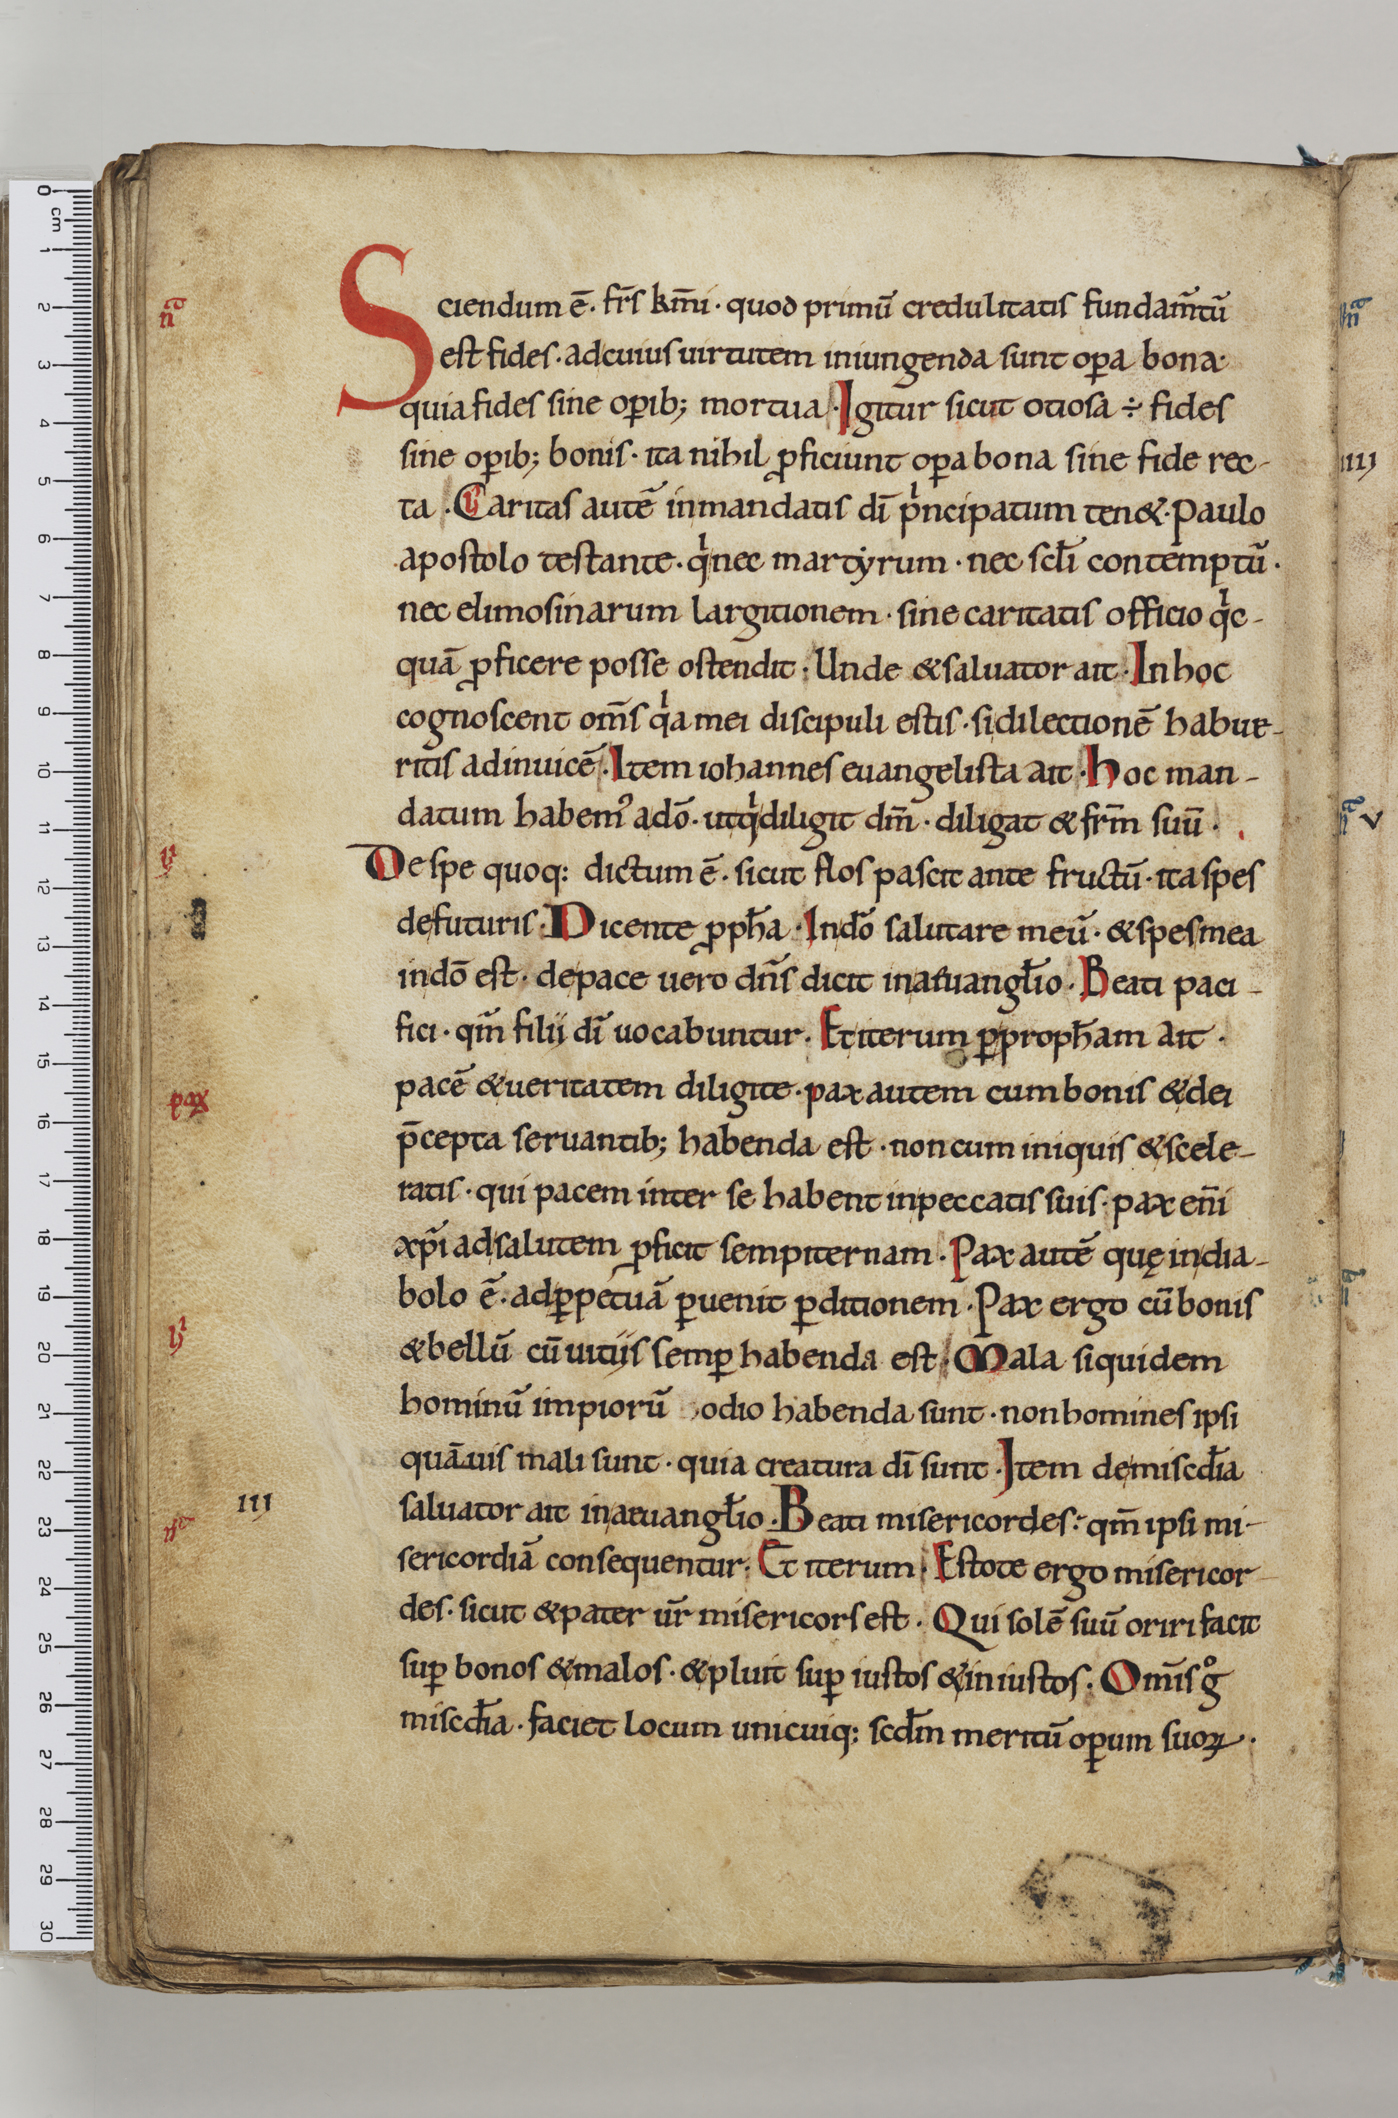 Sciendum ē. fr̄s km̄i· quod primū credulitatis fundam̄tū
est fides· adcuius uirtutem iniungenda sunt op̄a bona·
quia fides sine op̄ib; mortua· Igitur sicut otiosa ÷ fides
sine op̄ib; bonis· ita nihil ꝓficiunt op̄a bona sine fide rec-
ta· Caritas autē inmandatis dī pͥncipatum ten&· Paulo
apostolo testante· qͥ nec martẏrum· nec sc̄li contemptū·
nec elimosinarum largitionem· sine caritatis officio qͥc-
quā ꝓficere posse ostendit· Unde &saluator ait· In hoc
cognoscent om̄s qͥa mei discipuli estis· si dilectionē habue-
ritis adinuicē· Item iohannes euangelista ait· Hoc man-
datum habemꝰ adō· ut qͥ diligit dm̄· diligat & fr̄m suū·
De spe quoq: dictum ē· sicut flos pascit ante fructū· ita spes
defuturis· Dicente ꝓph̄a· Indō salutare meū· &spes mea
indō est· depace uero dn̄s dicit inaeuangl̄io· Beati paci-
fici· qm̄ filij dī uocabuntur· Et iterum ꝑproph̄am ait·
pacē &ueritatem diligite· pax autem cum bonis &dei
p̄cepta seruantib; habenda est· non cum iniquis &scele-
ratis· qui pacem inter se habent inpeccatis suis· pax en̄i
xp̄i adsalutem ꝓficit sempiternam· Pax autē quę india-
bolo ē· adꝑpetuā ꝑuenit ꝑditionem· Pax ergo cū bonis
&bellū cū uitijs semꝑ habenda est· Mala siquidem
hominū impiorū odio habenda sunt· non homines ipsi
quāuis mali sunt· quia creatura dī sunt· Item demiscd̄ia
saluator ait inaeuangl̄io· Beati misericordes· qm̄ ipsi mi-
sericordiā consequentur· Et iterum· Estote ergo misericor-
des· sicut &pater ur̄ misericors est· Qui solē suū oriri facit
suꝑ bonos &malos· &pluit suꝑ iustos &iniustos· Om̄is gͦ
miscd̄ia· faciet locum unicuiq: scd̄m meritū oꝑum suoꝝ·
pax
III
0 cm 1 2 3 4 5 6 7 8 9 10 11 12 13 14 15 16 17 18 19 20 21 22 23 24 25 26 27 28 29 30
IIIJ
V